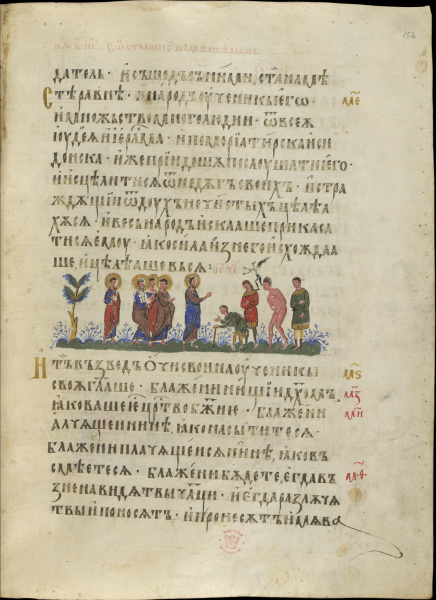 154
датель · и съшедъ съ ними, ста на мѣ
стѣ равнѣ · и народъ оученикь его ·
и множьство много людии · ѿ всеѫ
иоудеѧ и іерⷭ҇лма · и помориа тирска и си
донска · иже приидошѧ послоушати его ·
и исцѣлитисѧ ѿ недѫгъ своихъ · и стра
ждѫщии ѿ дх҃ъ нечистыхъ цѣлѣа
хѫсѧ · и весь народъ искааше прикаса
тисѧ емоу · ꙗко сила из него исхождаа
ше, и цѣлѣаше вьсѧ ·
И тъ възведъ очи свои на оученикы
своѫ гл҃аше · блажени нищии дх҃омъ,
ꙗко ваше е црⷭ҇тво бж҃ие · блажени
алчѫщеи нинѣ, ꙗко насытитесѧ ·
блажени плачѫщеисѧ нинѣ, ꙗко въ
смѣетесѧ · блажени бѫдете, егда въ
зненавидѧт вы чл҃ци · и егда разлѫчѧ
т вы и поносѧт · и пронесѫт имѧ ва